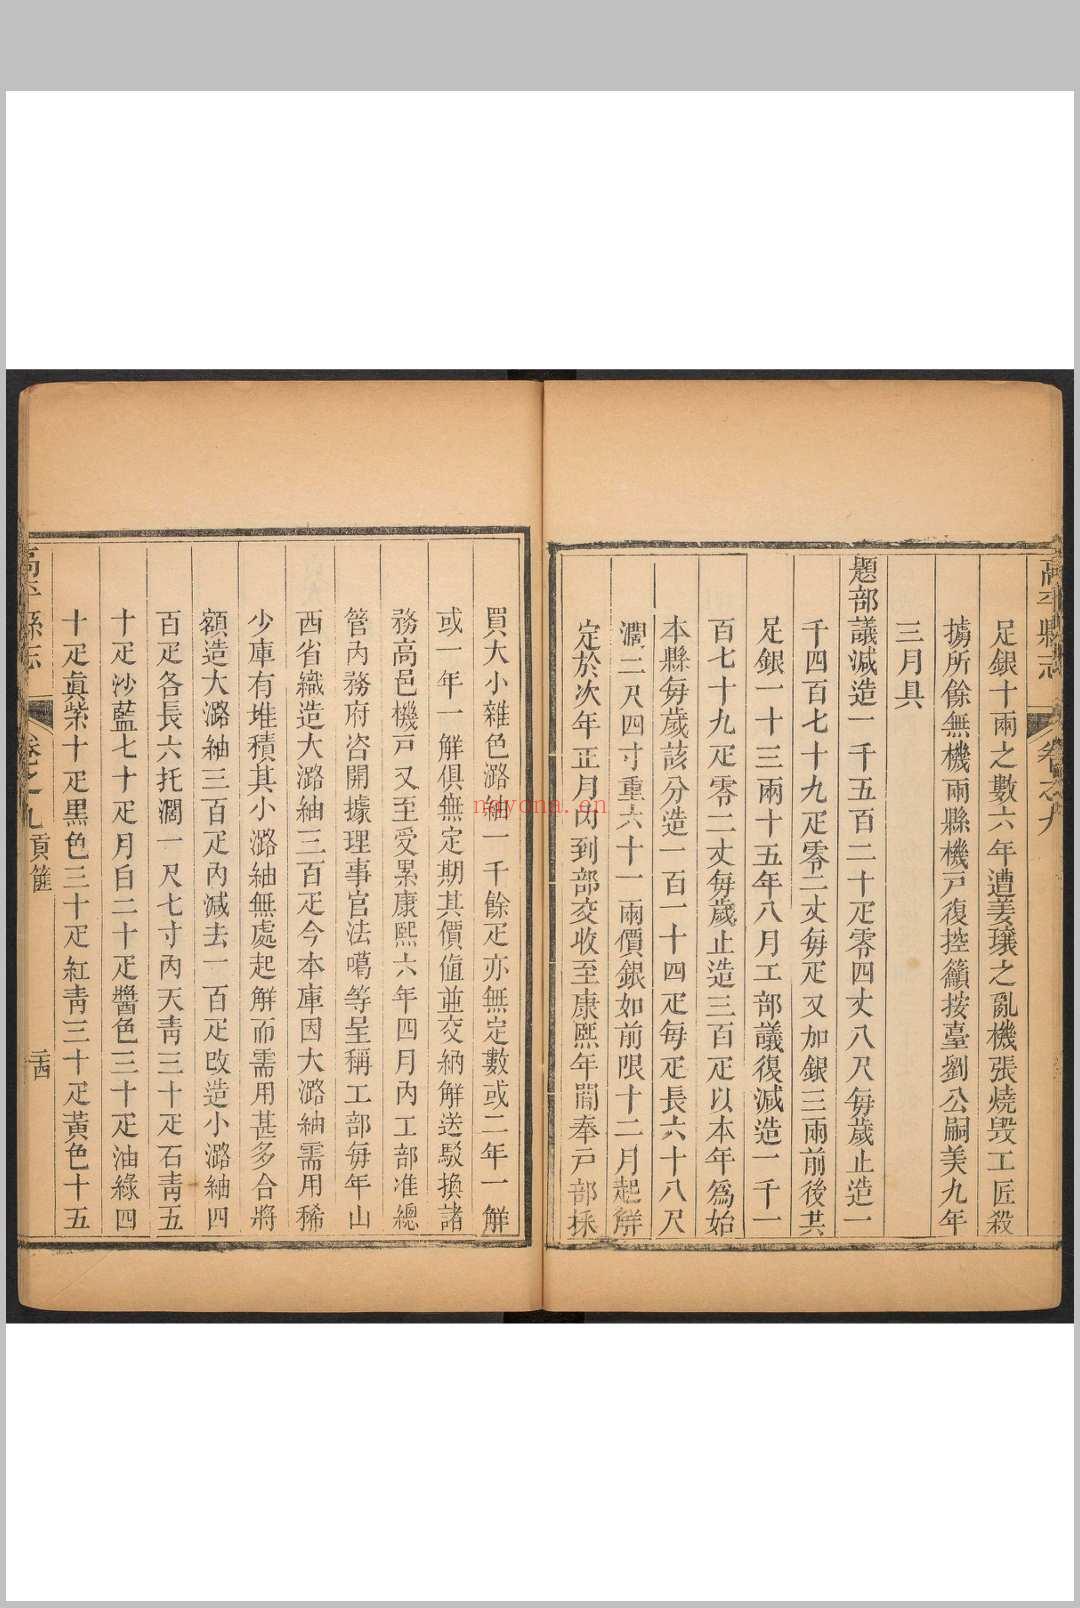 高平縣志
卷之九
足銀十兩之數六年遭姜瓖之亂機張燒毁工匠殺
擄所餘無機兩縣機戸復控籲按臺劉公嗣美九年
三月具
題部議減造一千五百二十疋零四丈八尺每歲止造一
千四百七十九疋零二丈每疋又加銀三兩前後共
足銀一十三兩十五年八月工部議復減造一千一
百七十九疋零二丈每歲止造三百疋以本年爲始
本縣每歲該分造一百一十四疋每疋長六十八尺
濶二尺四寸重六十一兩價銀如前限十二月起解
定於次年正月内到部交收至康熙年間奉戸部採
買大小雜色潞紬一千餘疋亦無定數或二年一解
或一年一解俱無定期其價值並交納解送駁換諸
務高邑機戸又至受累康熙六年四月内工部准總
管内務府咨開據理事官法噶等呈稱工部每年山
西省織造大潞紬三百疋今本庫因大潞紬需用稀
少庫有堆積其小潞紬無處起解而需用甚多合將
額造大潞紬三百疋内減去一百疋改造小潞紬四
百疋各長六托濶一尺七寸内天靑三十疋石靑五
十疋沙藍七十疋月白二十疋醬色三十疋油綠四
十疋眞紫十疋黑色三十疋紅靑三十疋黃色十五
高平縣志
卷之九
貢篚
二十四
nayona.cn